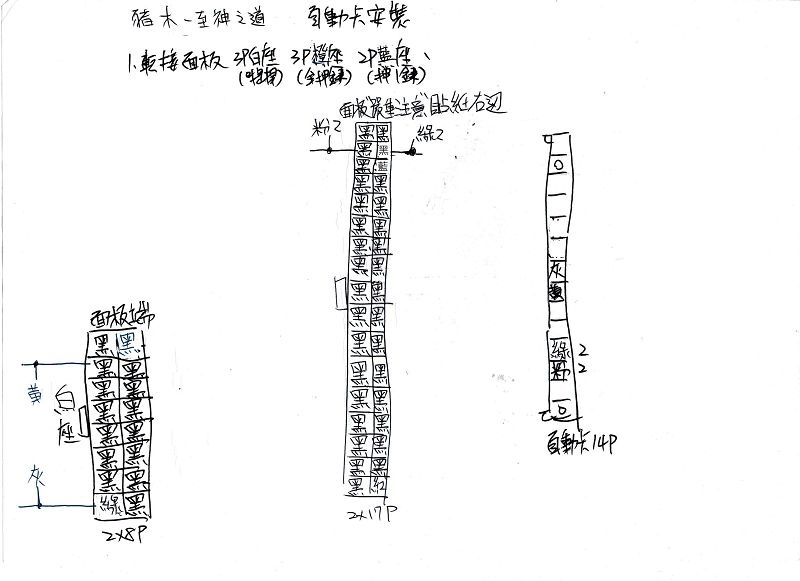 豬木-至神之道 自動卡安裝
1.転接面板 3P白座 3P橙座 2P藍座、
面板後重注意貼紙右边
粉2 綠2
黑 黑
黑 黑
黑 藍
黑 黑
黑 黑
黑 黑
黑 黑
黑 黑
黑 黑
黑 黑
黑 黑
黑 黑
黑 黑
黑 黑
黑 黑
黑 黑
黑 紅
2x17P
面板端
黃
白座
灰
黑 黑
黑 黑
黑 黑
黑 黑
黑 黑
黑 黑
黑 黑
綠 黑
2x8P
O
一
一
一
灰
黃
一
綠 2
粉 2
O
自動卡14P